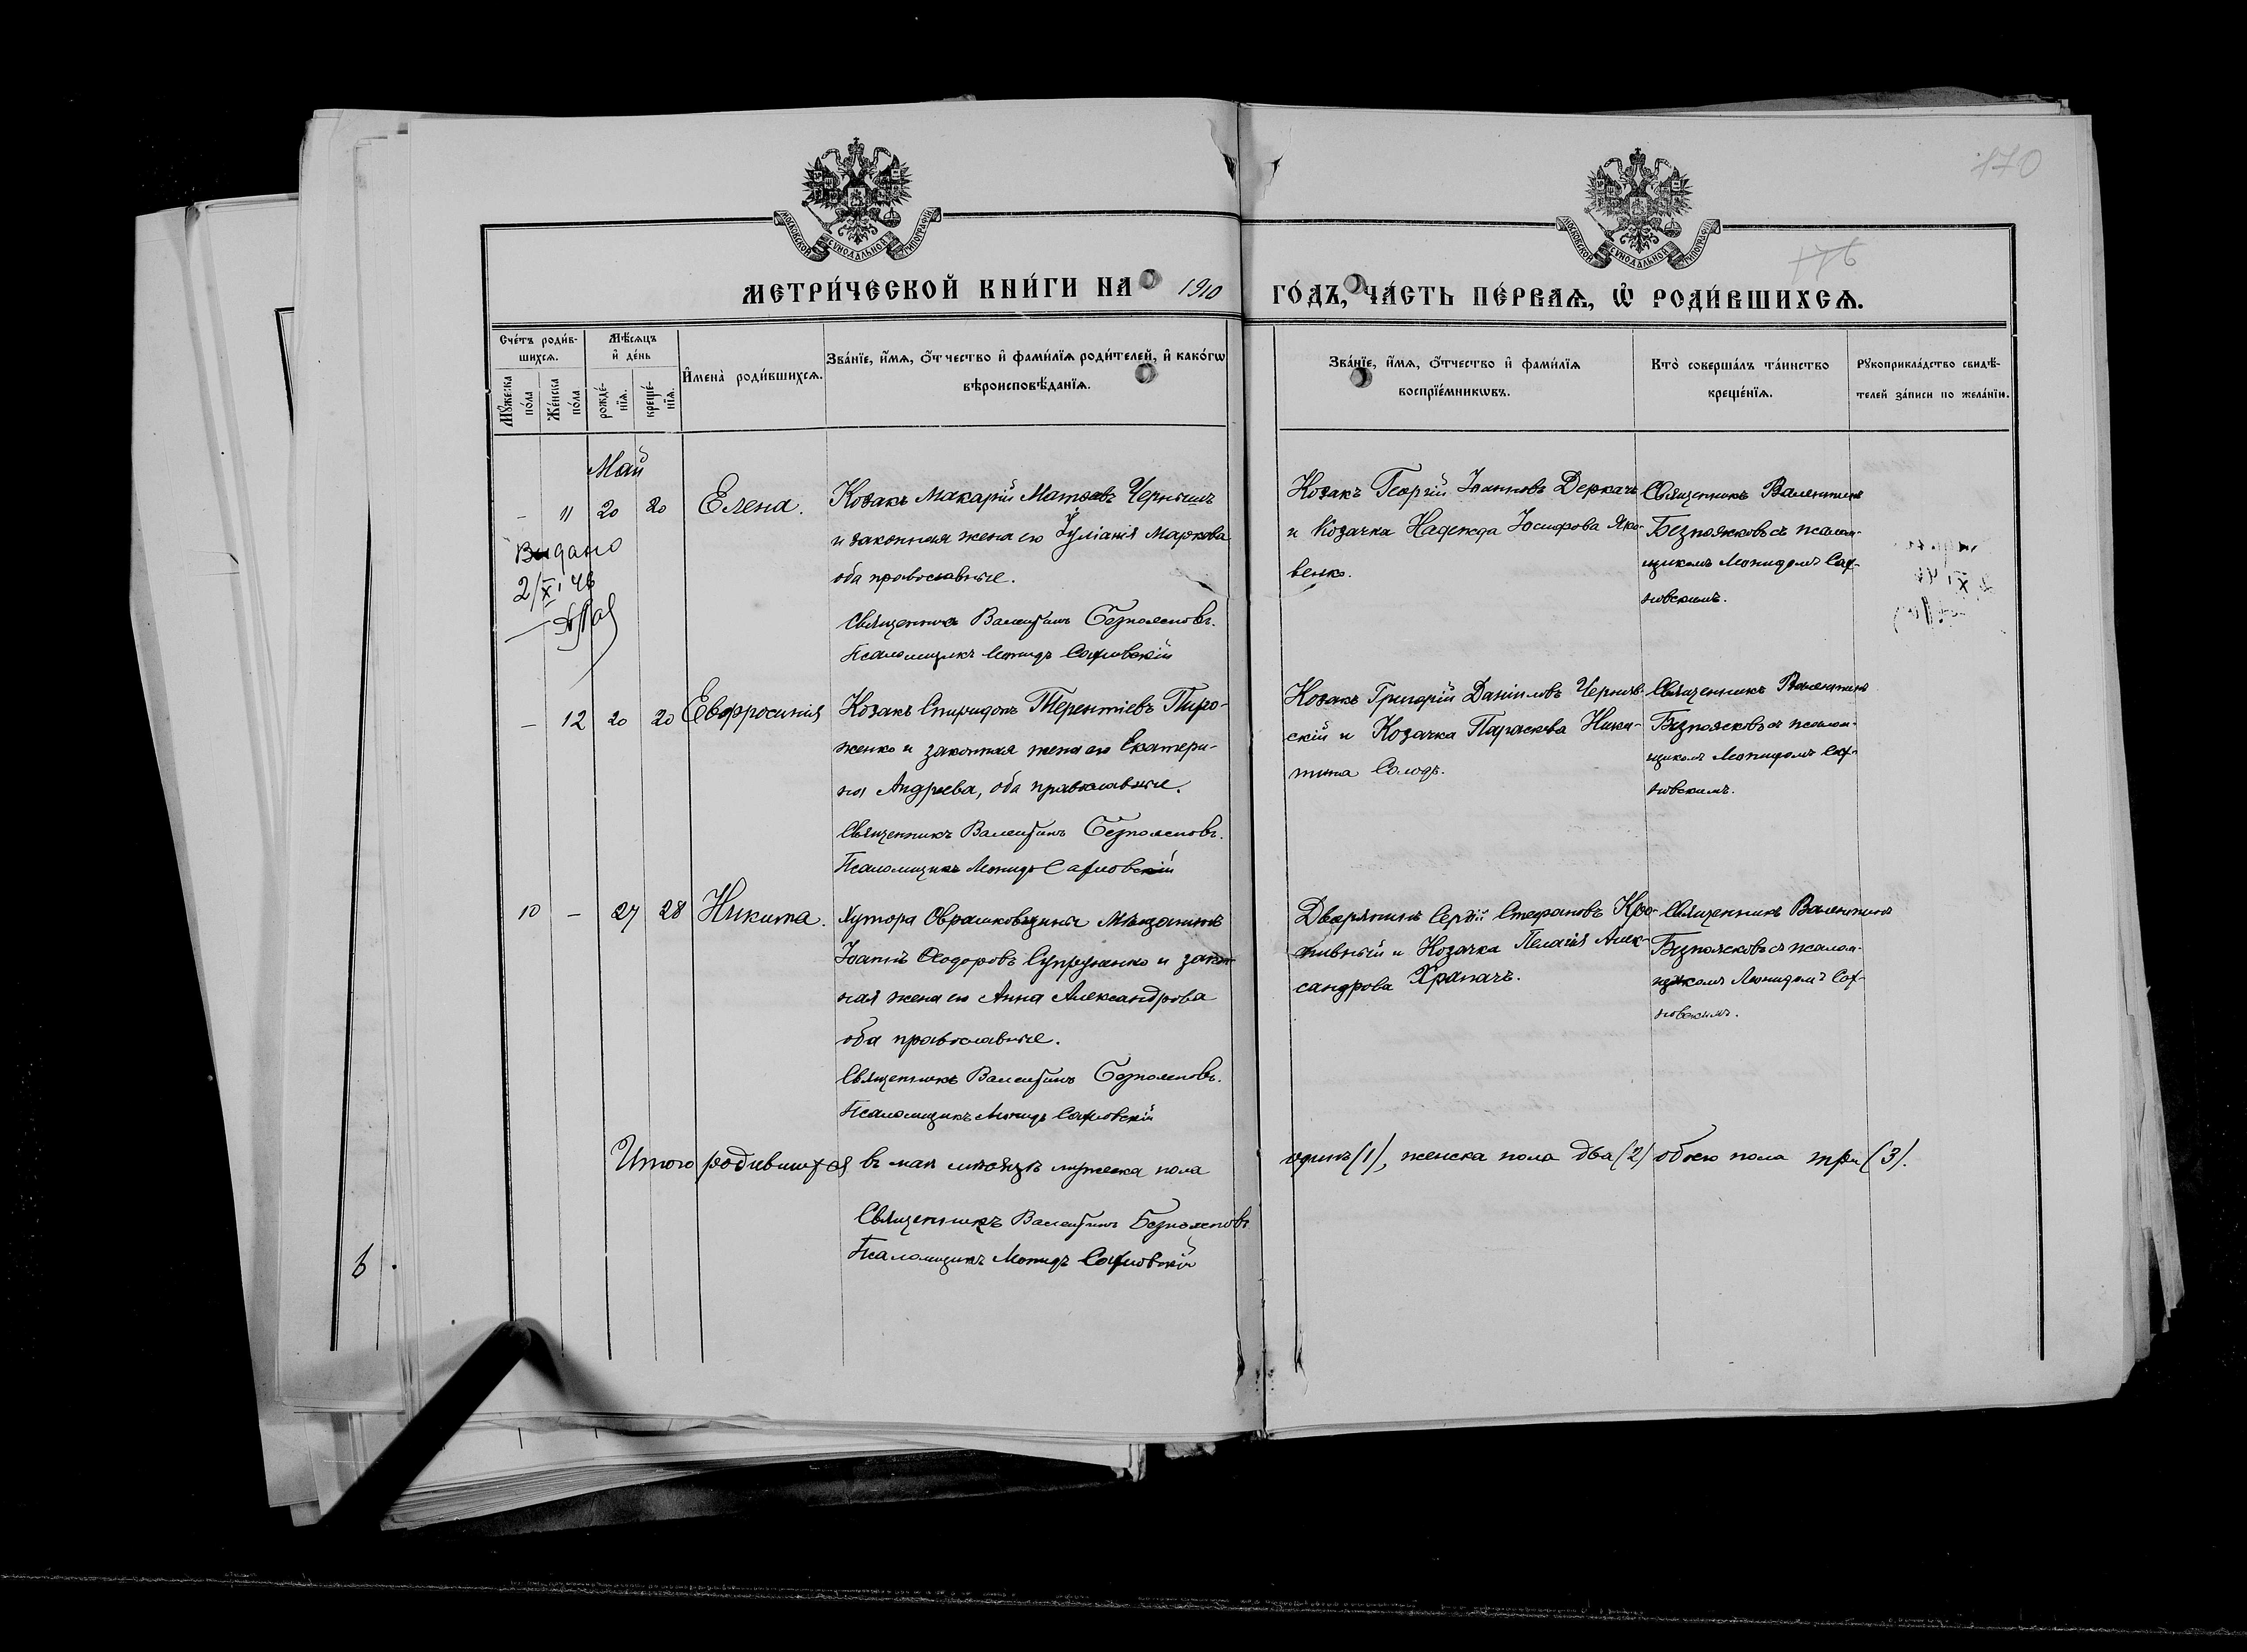 170
176
МОСКОВСКОЙ СѴНОДАЛЬНОЙ ТИПОГРАФІИ
МОСКОВСКОЙ СѴНОДАЛЬНОЙ ТИПОГРАФІИ
МЕТРИ́ЧЕСКОЙ КНИ́ГИ НА 1910 ГО́ДЪ, ЧА́СТЬ ПЕ́РВАѦ, Ѡ҆ РОДИ́ВШИХСѦ.
Сче́тъ роди́в-
шихсѧ.
Мꙋжеска по́ла
Же́нска по́ла
Мѣ́сѧцъ
и҆ де́нь
рожде́-
нїѧ.
креще́-
нїѧ.
И҆мена̀ роди́вшихсѧ.
Зва́нїе, и҆́мѧ, ѻ҆́тчество и҆ фами́лїѧ роди́телей, и҆ како́гѡ
вѣроисповѣ́данїѧ.
Зва́нїе, и҆́мѧ, ѻ҆́тчество и҆ фами́лїѧ
воспрїе́мникѡвъ.
Кто̀ соверша́лъ та́инство
креще́нїѧ.
Рꙋкоприкла́дство свидѣ́-
телей за́писи по жела́нїю.
Май
– 11 20 20 Елена.
Козакъ Макарій Матѳеевъ Чернышъ
и законная жена его Іуліанія Маркова
оба православные.
Священникъ Валентинъ Безпоясковъ.
Псаломщикъ Леонидъ Сахновскій
Козакъ Георгій Іоанновъ Деркачъ
и Козачка Надежда Іосифова Яко-
венко.
Священникъ Валентинъ
Безпоясковъ съ псалом-
щикомъ Леонидомъ Сах-
новскимъ.
Видано
2/XI 48
– 12 20 20 Евфросинія
Козакъ Спиридонъ Терентіевъ Пиро-
женко и законная жена его Екатери-
на Андреева, оба православные.
Священникъ Валентинъ Безпоясковъ.
Псаломщикъ Леонидъ Сахновскій
Козакъ Григорій Даніиловъ Черняв-
скій и Козачка Параскева Ники-
тина Солодъ.
Священникъ Валентинъ
Безпоясковъ съ псалом-
щикомъ Леонидомъ Сах-
новскимъ.
10 – 27 28 Никита.
Хутора Оврашковщины Мѣщанинъ
Іоаннъ Ѳеодоровъ Супруненко и закон-
ная жена его Анна Александрова
оба православные.
Священникъ Валентинъ Безпоясковъ.
Псаломщикъ Леонидъ Сахновскій
Дворянинъ Сергій Стефановъ Кро-
пивный и Козачка Пелагія Алек-
сандрова Храпачъ.
Священникъ Валентинъ
Безпоясковъ съ псалом-
щикомъ Леонидомъ Сах-
новскимъ.
Итого родившихся въ маѣ мѣсяцѣ мужеска пола одинъ (1), женска пола два (2) обоего пола три (3).
Священникъ Валентинъ Безпоясковъ
Псаломщикъ Леонидъ Сахновскій